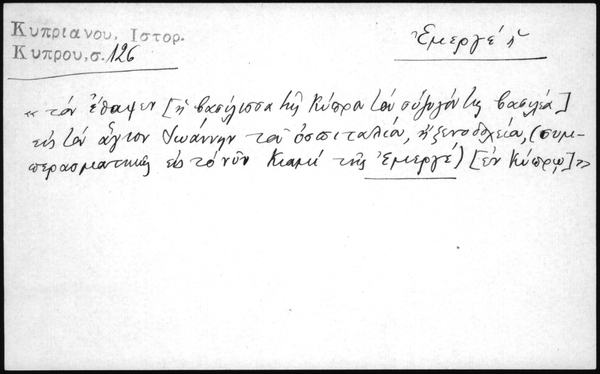 Κυπριανου, Ιστορ.
Κυπρου, σ. 126
Ἐμεργέ ἡ
« τὸν ἔθαψεν [ἡ βασίλισσα τῆς Κύπρου τὸν σύζυγόν της βασιλέα]
εἰς τὸν ἅγιον Ἰωάννην τοῦ ὁσπιταλίου, ἢ ξενοδοχείου, (συμ-
περασματικῶς εἰς τὸ νῦν Κιαμί τῆς Ἐμεργέ) [ἐν Κύπρῳ] »